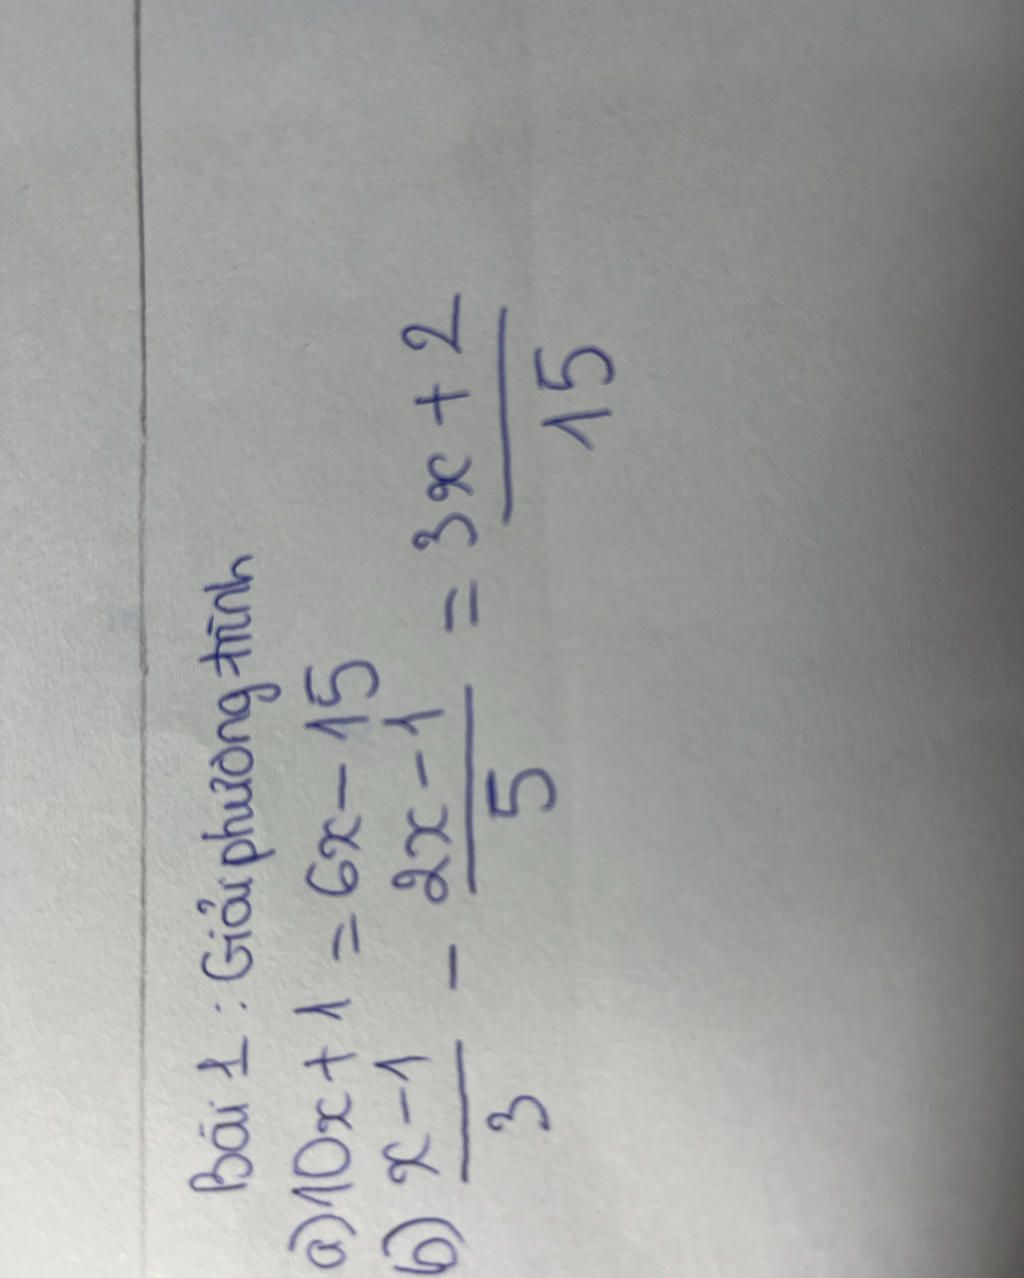 Bài 1 : Giải phương trình
a) 10x + 1 = 6x - 15
b) x-1/3 - 2x-1/5 = 3x+2/15